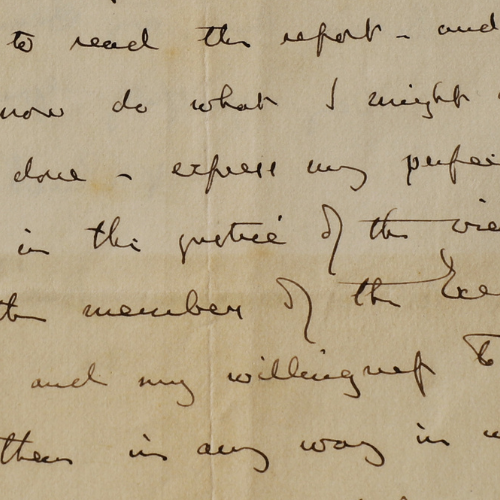 to read the report - and
now do what I might
done - express my perfec
in the justice of the vie
the member of the Exe
and my willingness to
them in any way in